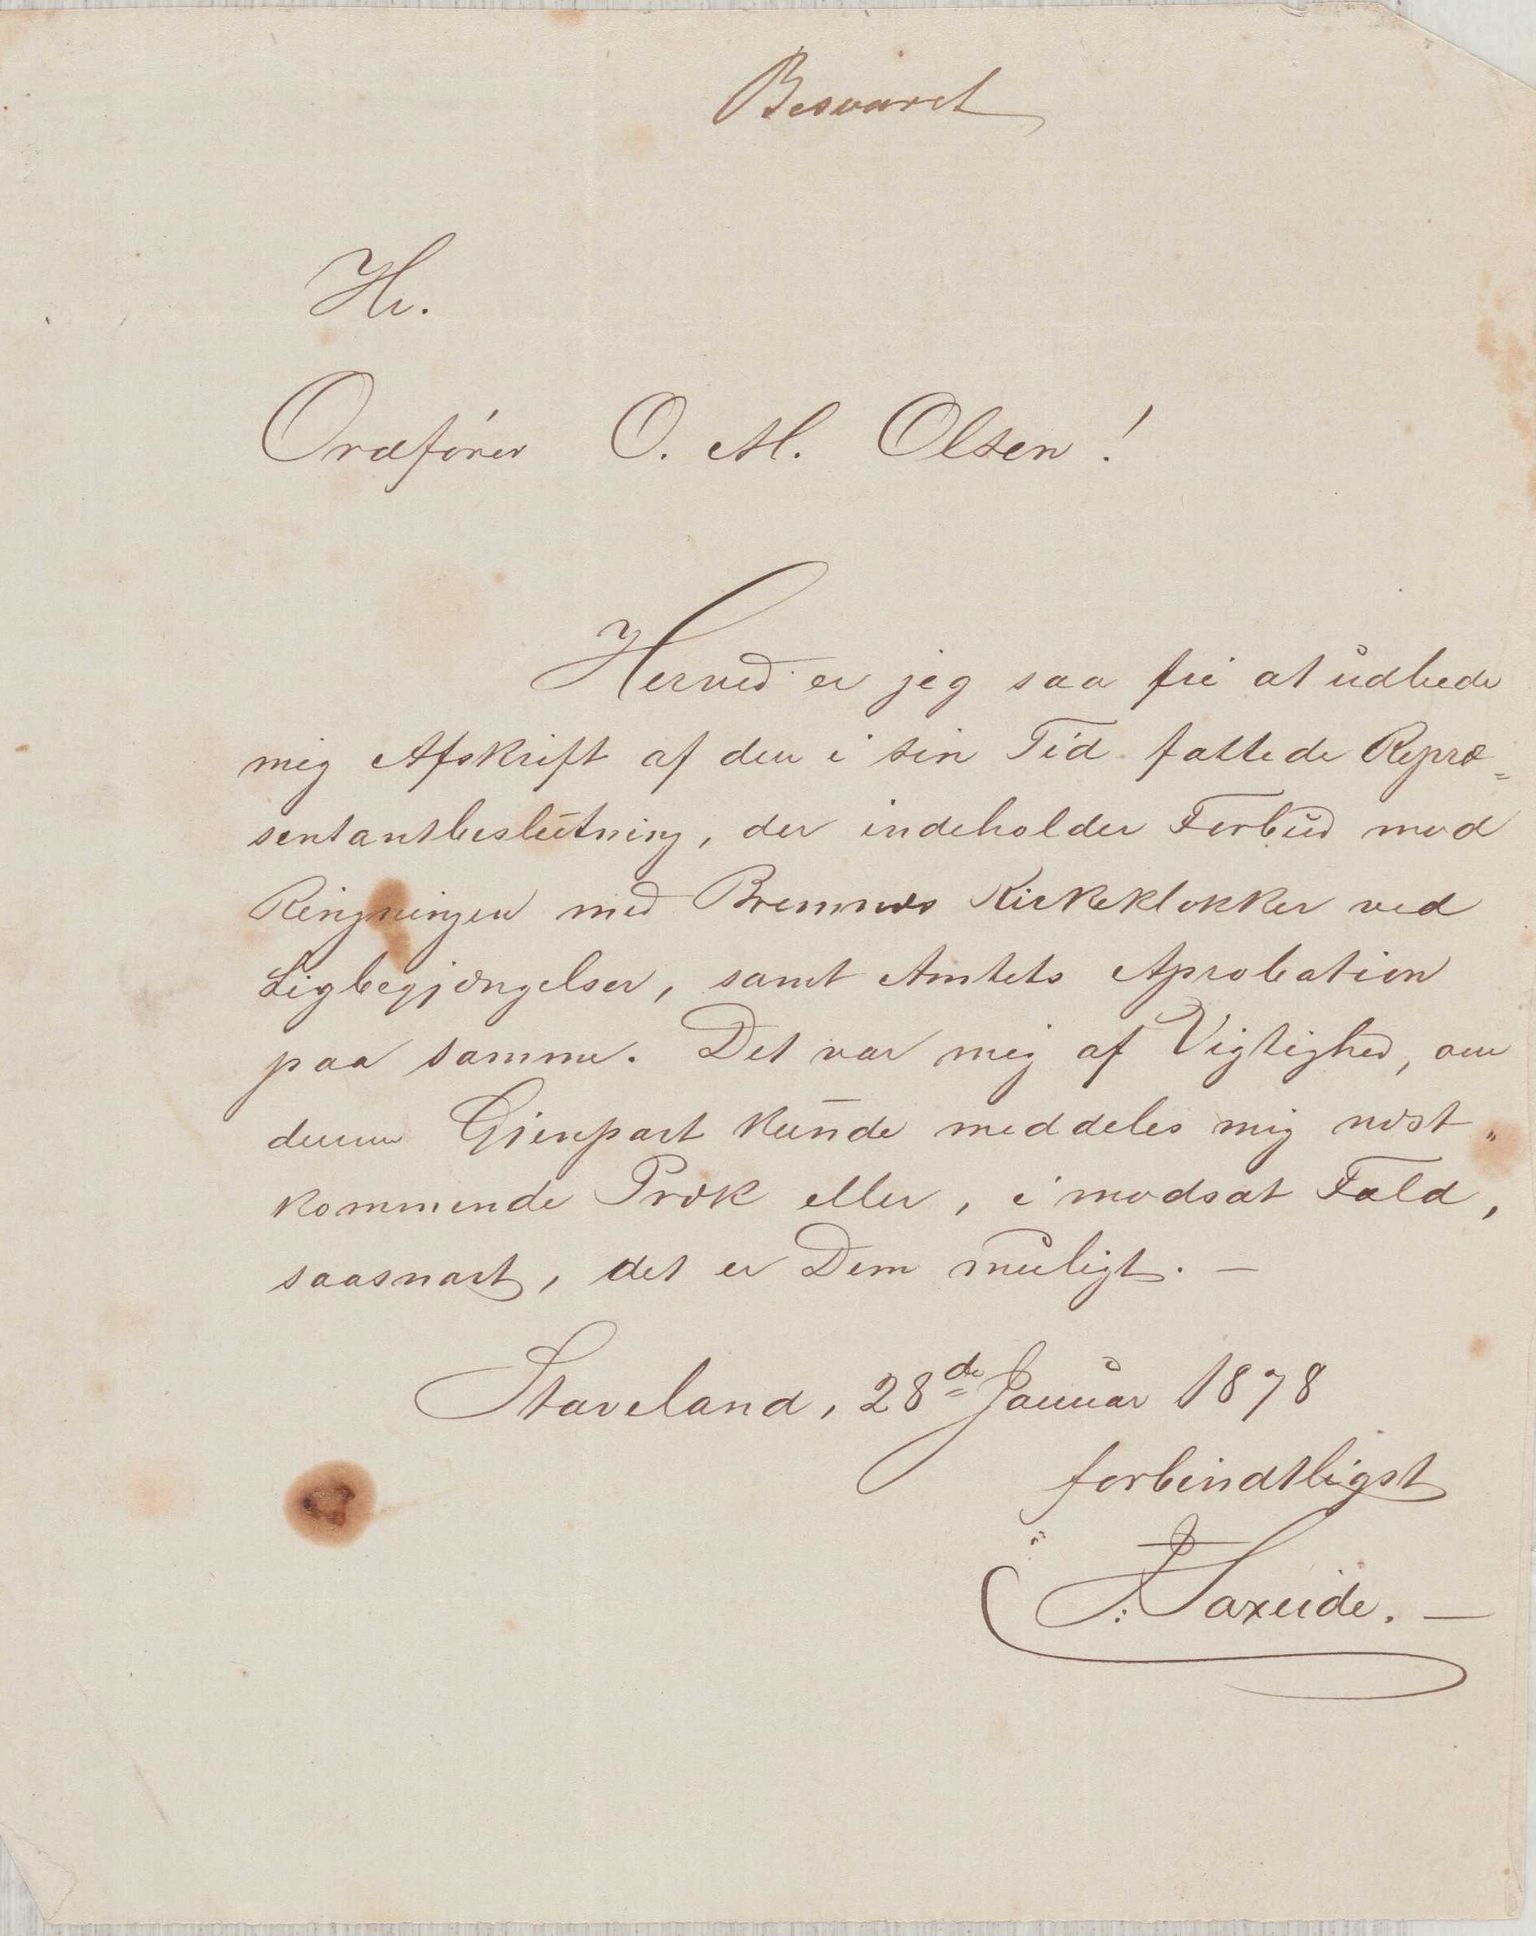 Besvaret
Hr.
Ordfører O. M. Olsen!
Herved er jeg saa fri at udbede
mig Afskrift af den i sin Tid fattede Repræ=
sentantbeslutning, der indeholder Forbud mod
Ringningen med Bremnæs Kirkeklokker ved
Ligbegjængelser, samt Amtets Aprobation
paa samme. Det var mig af Vigtighed, om
denne Gjenpart kunde meddeles mig næst„
kommende Præk eller, i modsat Fald,
saasnart, det er Dem muligt. —
Staveland, 28de Januar 1878
forbindtligst
J: Saxeide. —